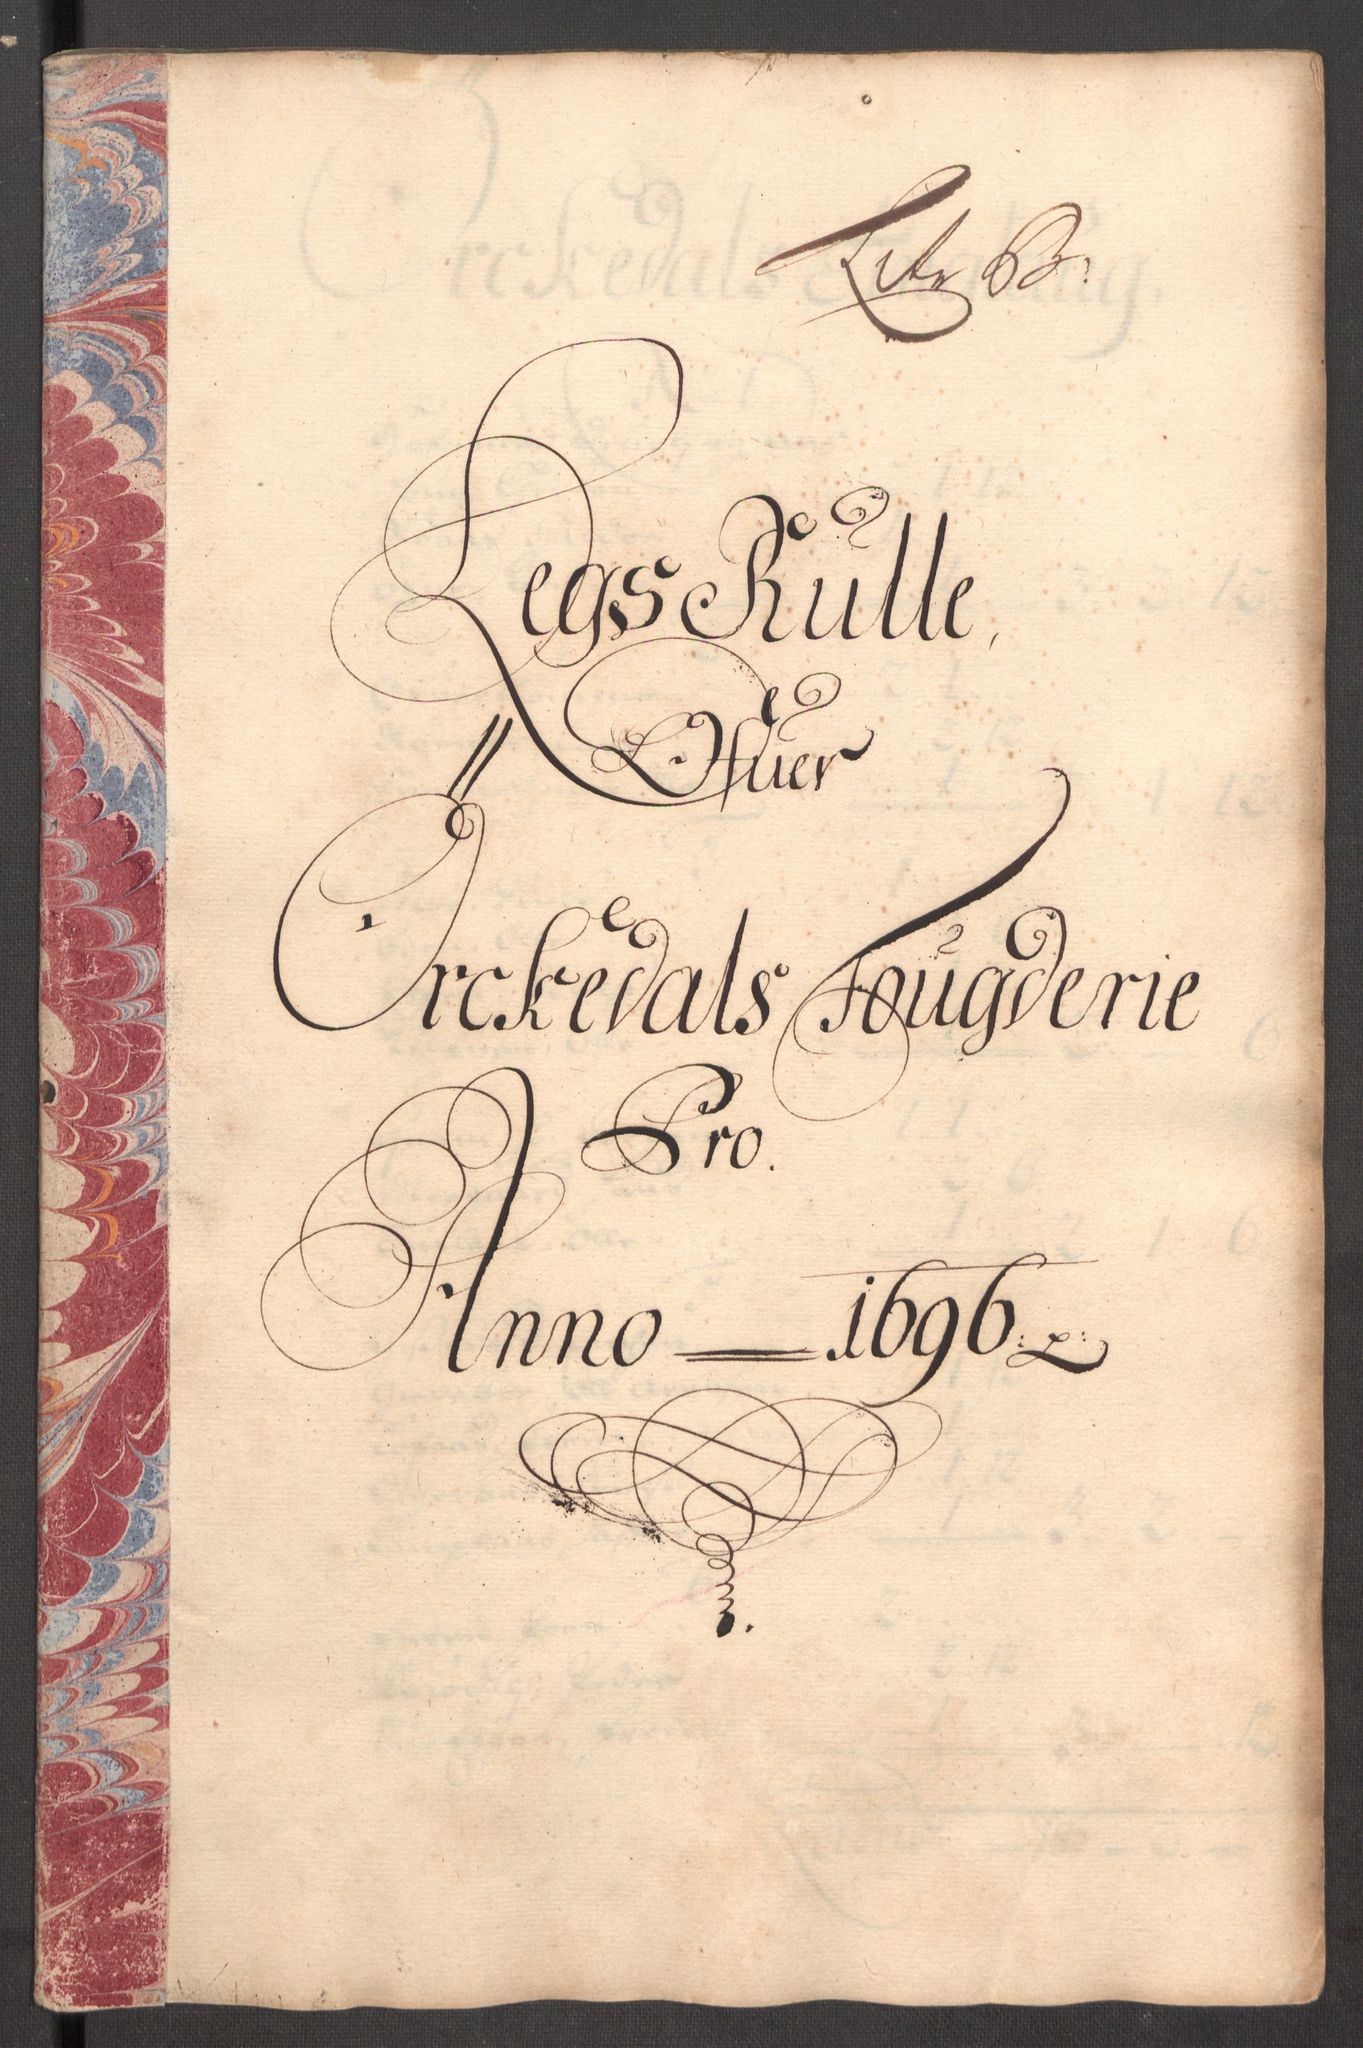 Litr B:
Legs Rulle,
Ofuer
Orckedals Fougderie
Pro.
Anno — 1696